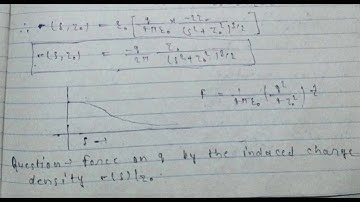 ∴ σ(ρ, z₀) = ε₀ [ q / 4πε₀ × -2z₀ / (ρ² + z₀²)^3/2 ]
σ(ρ, z₀) = -q / 2π z₀ / (ρ² + z₀²)^3/2
F = 1 / 4πε₀ ( q² / + z₀² )
ρ →
Question → Force on q by the induced charge
density σ(ρ)|z₀.